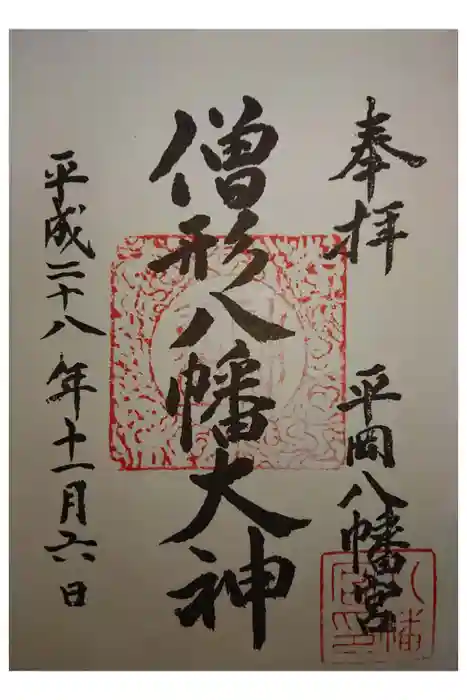 奉拝
平岡八幡宮
僧形八幡大神
平成二十八年十一月六日